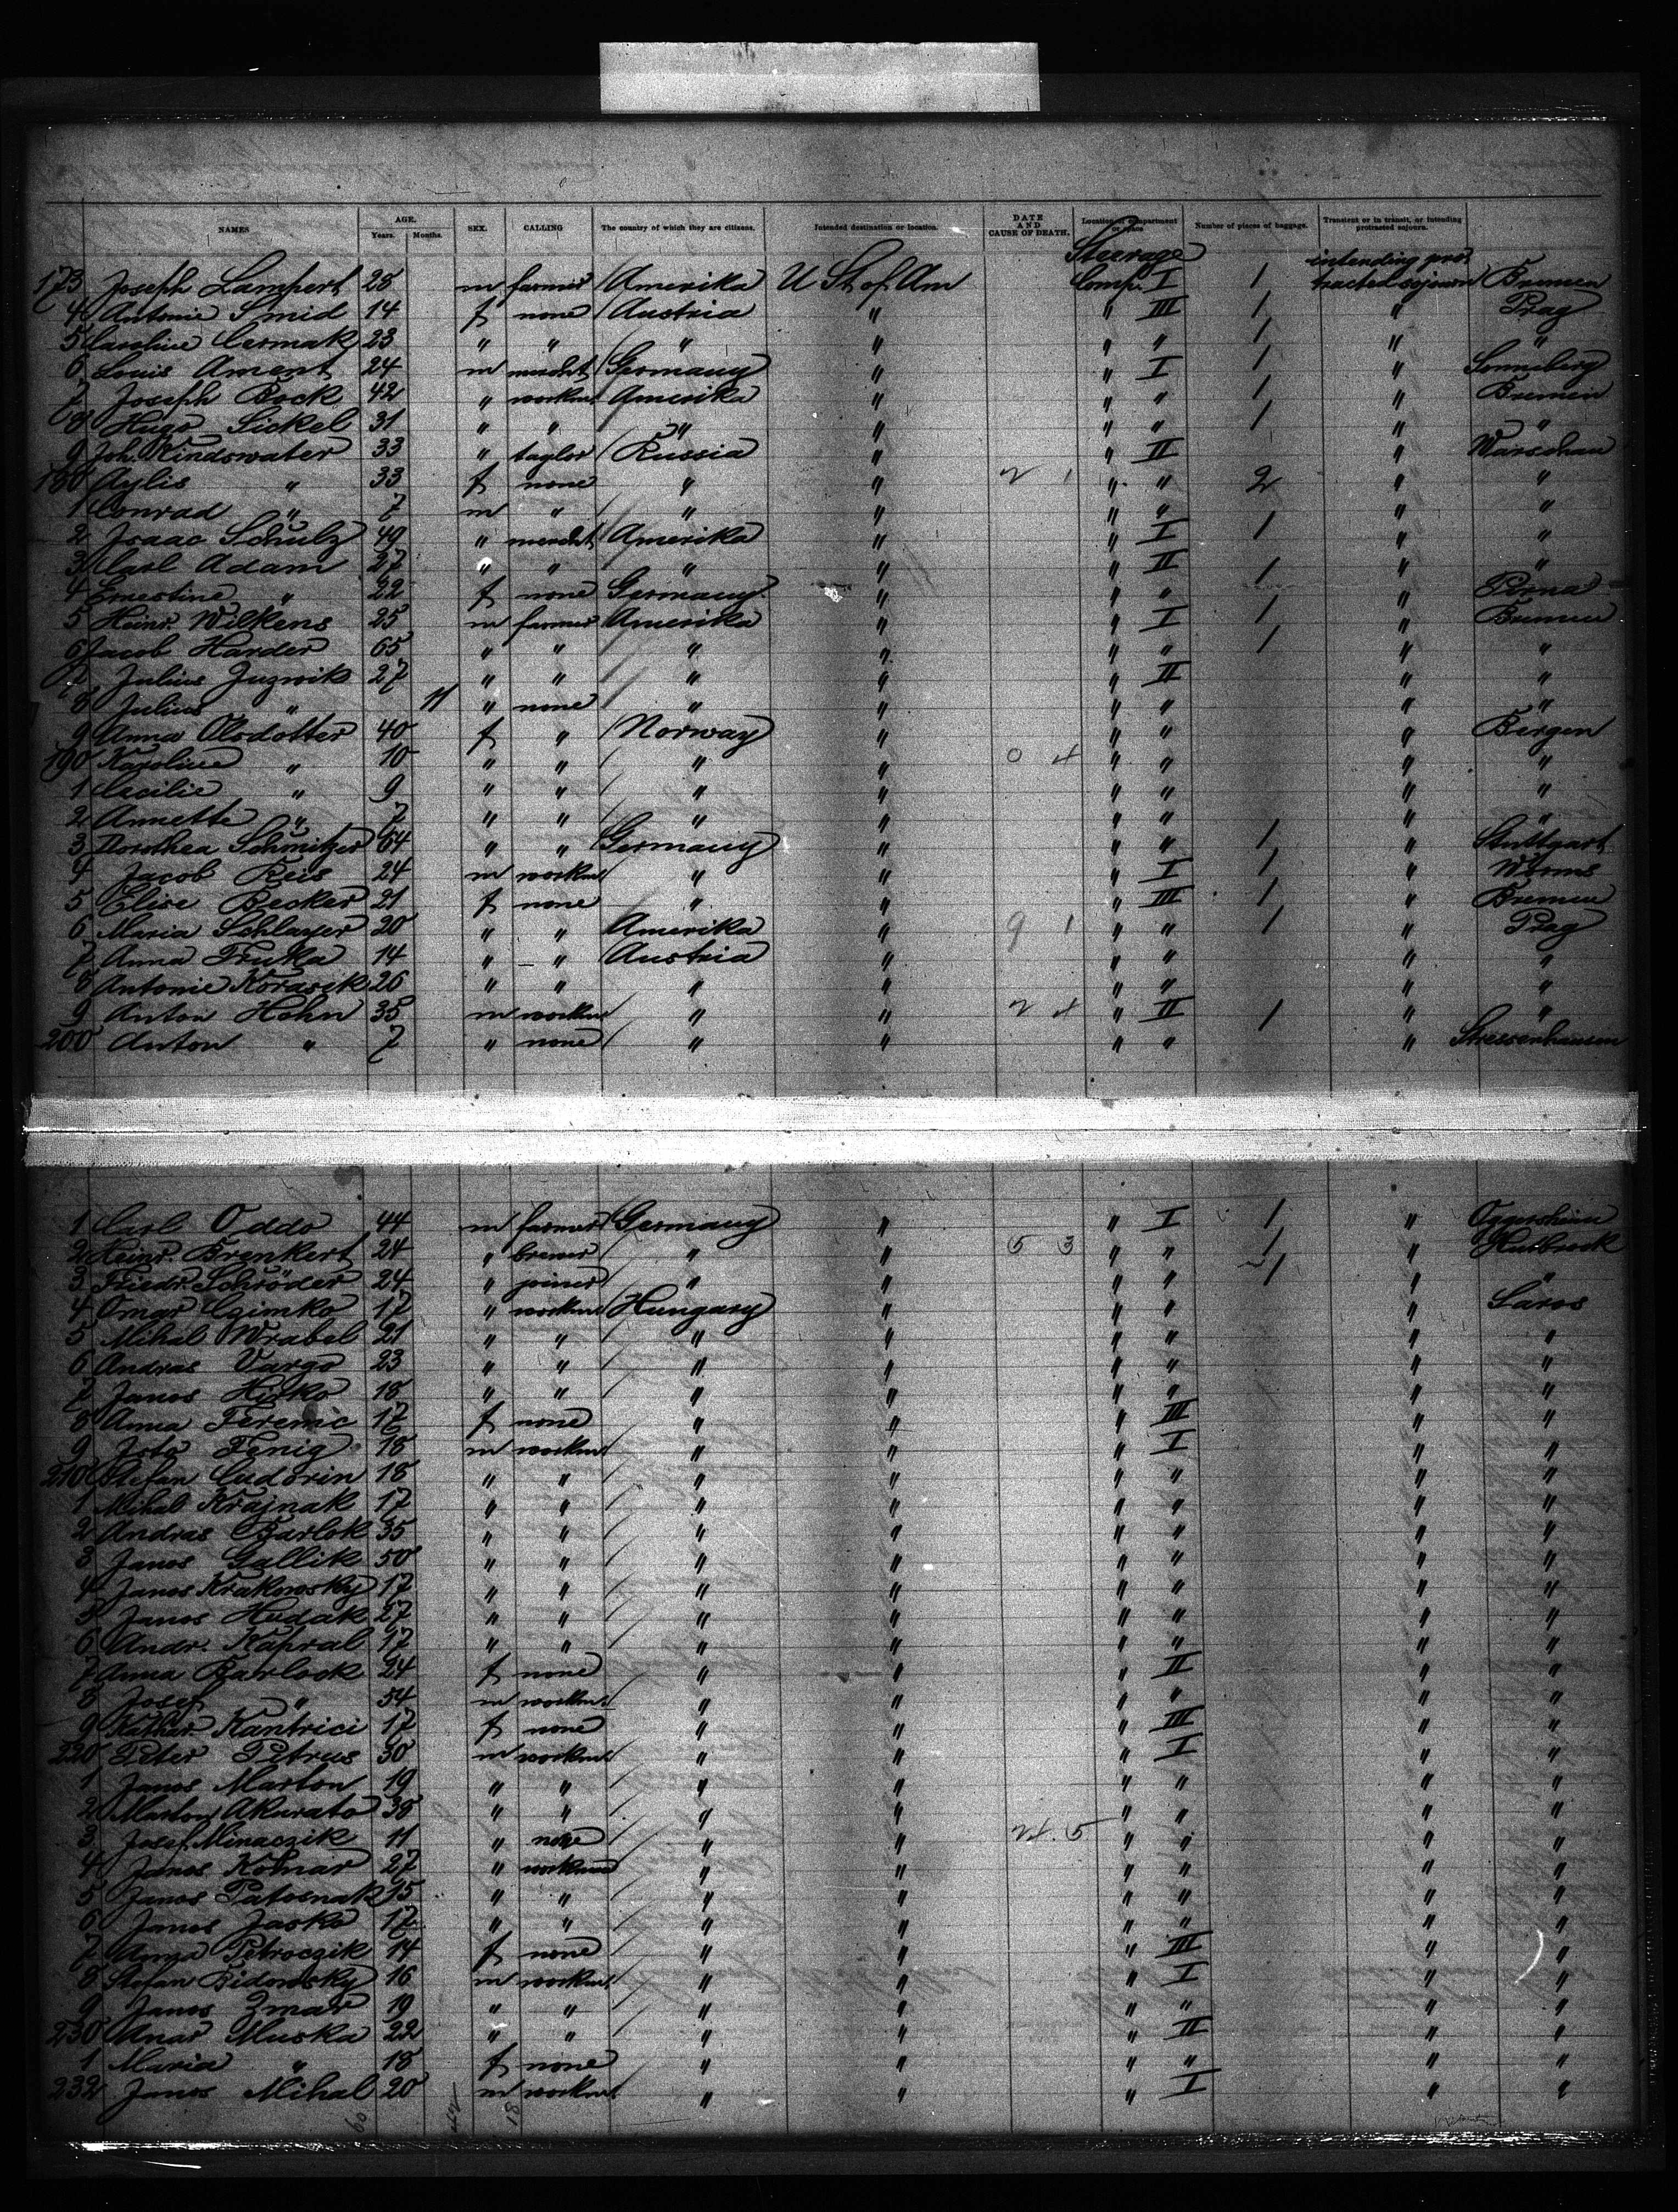 NAMES AGE. Years. Months. SEX. CALLING The country of which they are citizens. Intended destination or location. DATE AND CAUSE OF DEATH. Location of compartment or space Number of pieces of baggage. Transient or in transit, or intending protracted sojourn.
Steerage intending pro
173 Joseph Lampert 28 m farmer Amerika U St of Am Comp. I 1 tracted sojourn Bremen
4 Antonie Smid 14 f none Austria " " III 1 " Prag
5 Caroline Cermak 23 " " " " " " 1 " "
6 Louis Ament 24 m mercht Germany " " I 1 " Sonneberg
7 Joseph Bock 42 " workm Amerika " " " 1 " Bremen
8 Hugo Sickel 31 " " " " " " 1 " "
9 Joh. Windswater 33 " taylor Russia " " II " Warschau
180 Aylis " 33 f none " " 2 1 " " 2 " "
1 Conrad " 7 m " " " " " " "
2 Isaac Schulz 49 " mercht Amerika " " I 1 " "
3 Carl Adam 27 " " " " " II " "
4 Ernestine " 22 f none Germany " " " 1 "
5 Heinr. Wilkens 25 m farmer Amerika " " I 1 " Bremen
6 Jacob Harder 65 " " " " " " 1 " "
7 Julius Juzwik 27 " " " " " II " "
8 Julius " 11 " none " " " " " "
9 Anna Olsdotter 40 f " Norway " " " " Bergen
190 Karoline " 10 " " " " 0 4 " " " "
1 Cecilie " 9 " " " " " " " "
2 Annette " 7 " " " " " " " "
3 Dorothea Schmitzer 64 " " Germany " " " 1 " Stuttgart
4 Jacob Reis 24 m workm " " " I 1 " Worms
5 Elise Becker 21 f none " " " III 1 " Bremen
6 Maria Schlayer 20 " " Amerika " 9 1 " " 1 " Prag
7 Anna Truka 14 " " Austria " " " " "
8 Antonie Korasik 26 " " " " " " " "
9 Anton Hohn 35 m workm " " 2 4 " II 1 " "
200 Anton " 7 " none " " " " " Stressenhausen
1 Carl Oddo 44 m farmer Germany " " I 1 " Oggersheim
2 Heinr. Brenkert 24 " brewer " " 5 3 " " 1 "
3 Friedr. Schröder 24 " joiner " " " " 1 " "
4 Omar Czimko 17 " workm Hungary " " " " Saros
5 Mihal Wrabel 21 " " " " " " " "
6 Andras Vargo 23 " " " " " " " "
7 Janos Hirko 18 " " " " " " " "
8 Anna Ferenic 17 f none " " " III " "
9 Josto Fenig 18 m workm " " " I " "
210 Stefan Cudorin 18 " " " " " " " "
1 Mihal Krajnak 17 " " " " " " " "
2 Andras Barlok 35 " " " " " " " "
3 Janos Gallik 50 " " " " " " " "
4 Janos Krakowsky 17 " " " " " " " "
5 Janos Hudak 27 " " " " " " " "
6 Andr. Kapral 17 " " " " " " " "
7 Anna Barlock 24 f none " " " II " "
8 Josef " 54 m workm " " " " " "
9 Kathar Kantrici 17 f none " " " III " "
220 Peter Petrus 30 m workm " " " I " "
1 Janos Marton 19 " " " " " " " "
2 Marton Akurato 38 " " " " " " " "
3 Josef Minaczik 11 " none " " 24.5 " " " "
4 Janos Kolnar 27 " workman " " " " " "
5 Janos Patosnak 15 " " " " " " " "
6 Janos Jasko 17 " " " " " " " "
7 Anna Petroczik 14 f none " " " III " "
8 Stefan Bidowsky 16 m workm " " " I " "
9 Janos Zmar 19 " " " " " " " "
230 Anar Muska 22 " " " " " II " "
1 Maria " 18 f none " " " " " "
232 Janos Mihal 20 m workm " " " I " "
60 42 18